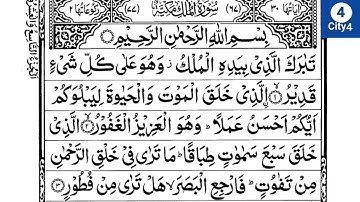 اٰیَاتُهَا ٣٠ (٦٧) سُوْرَةُ الْمُلْكِ مَكِّيَّةٌ (٧٧) رُكُوْعَاتُهَا ٢
4
City4
بِسْمِ اللّٰهِ الرَّحْمٰنِ الرَّحِيْمِ
تَبٰرَكَ الَّذِيْ بِيَدِهِ الْمُلْكُ ۫ وَهُوَ عَلٰى كُلِّ شَيْءٍ
قَدِيْرُ ۙ﴿١﴾ الَّذِيْ خَلَقَ الْمَوْتَ وَالْحَيٰوةَ لِيَبْلُوَكُمْ
اَيُّكُمْ اَحْسَنُ عَمَلًا ؕ وَهُوَ الْعَزِيْزُ الْغَفُوْرُ ۙ﴿٢﴾ الَّذِيْ
خَلَقَ سَبْعَ سَمٰوٰتٍ طِبَاقًا ؕ مَا تَرٰى فِيْ خَلْقِ الرَّحْمٰنِ
مِنْ تَفٰوُتٍ ؕ فَارْجِعِ الْبَصَرَ ۙ هَلْ تَرٰى مِنْ فُطُوْرٍ ﴿٣﴾